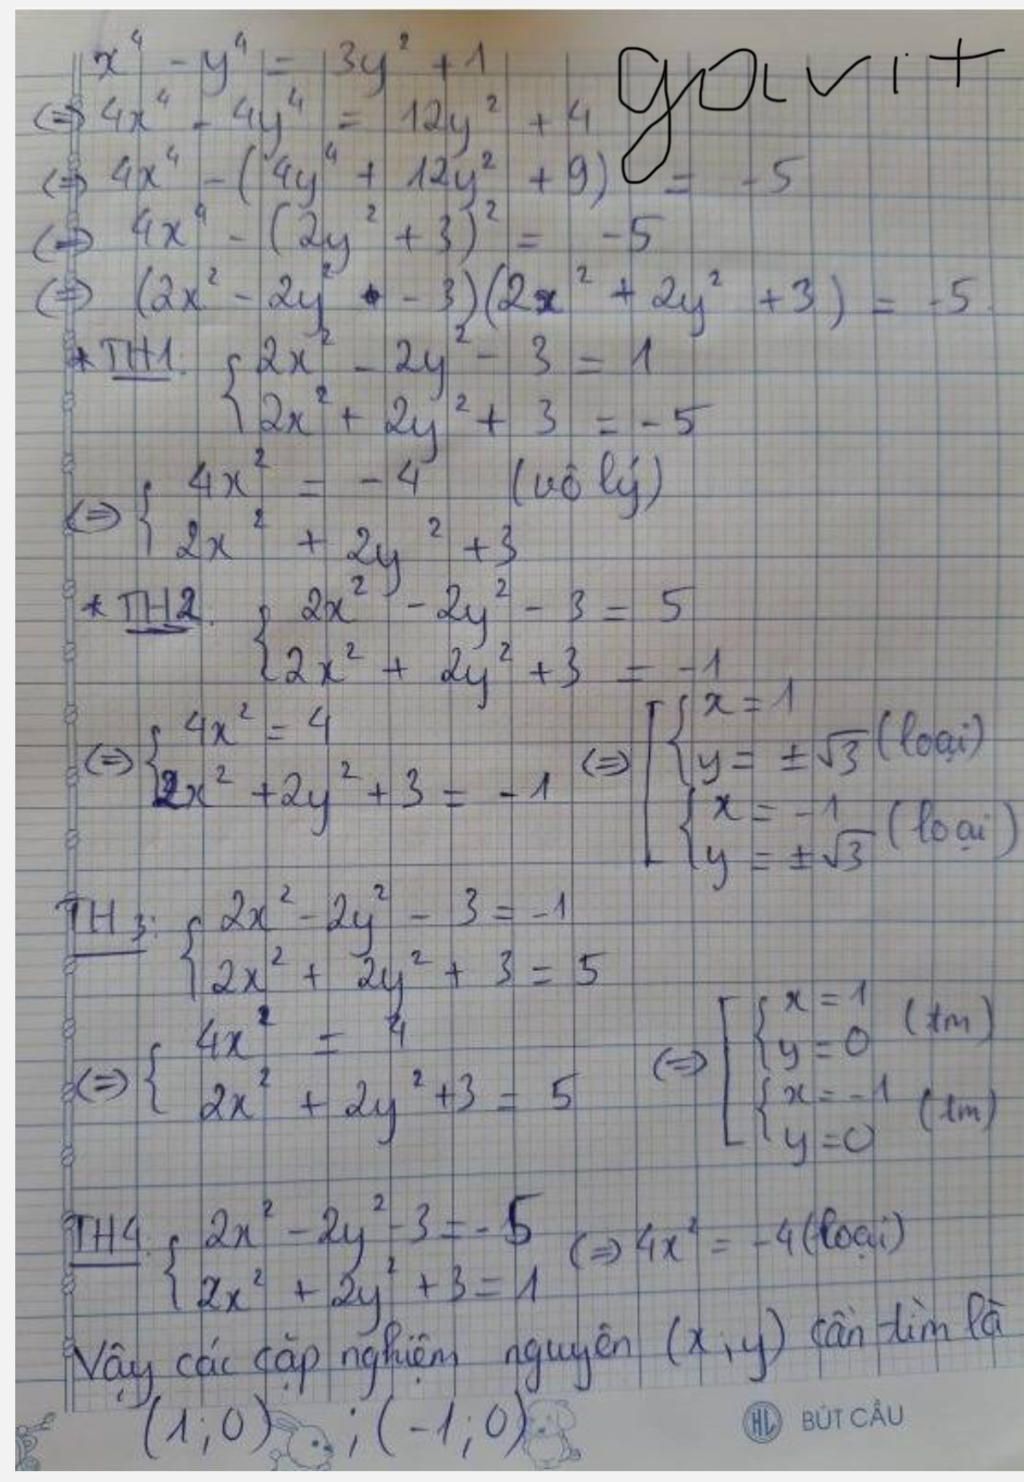 x⁴ - y⁴ = 3y² + 1
gavit
(=) 4x⁴ - 4y⁴ = 12y² + 4
(=) 4x⁴ - (4y⁴ + 12y² + 9) = -5
(=) 4x⁴ - (2y² + 3)² = -5
(=) (2x² - 2y² - 3)(2x² + 2y² + 3) = -5
* TH1. { 2x² - 2y² - 3 = 1
2x² + 2y² + 3 = -5
(=) { 4x² = -4 (vô lý)
2x² + 2y² + 3
* TH2. { 2x² - 2y² - 3 = 5
2x² + 2y² + 3 = -1
(=) { 4x² = 4
2x² + 2y² + 3 = -1
(=) [ { x = 1
y = ±√3 (loại)
{ x = -1
y = ±√3 (loại)
TH3: { 2x² - 2y² - 3 = -1
2x² + 2y² + 3 = 5
(=) { 4x² = 4
2x² + 2y² + 3 = 5
(=) [ { x = 1
y = 0 (tm)
{ x = -1
y = 0 (tm)
TH4. { 2x² - 2y² - 3 = -5
2x² + 2y² + 3 = 1
(=) 4x² = -4 (loại)
Vậy các cặp nghiệm nguyên (x, y) cần tìm là
(1; 0) ; (-1; 0)
HL BÚT CÂU